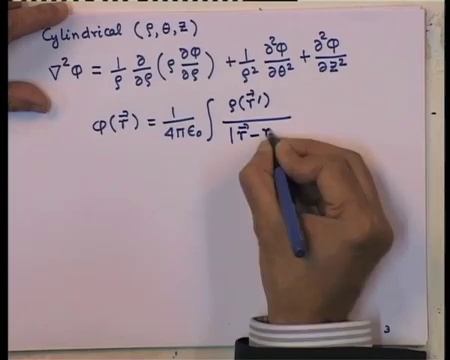 Cylindrical (ρ, θ, z)
∇²φ = 1/ρ ∂/∂ρ (ρ ∂φ/∂ρ) + 1/ρ² ∂²φ/∂θ² + ∂²φ/∂z²
φ(r⃗) = 1/4πε₀ ∫ ρ(r⃗′)/|r⃗ − r
3